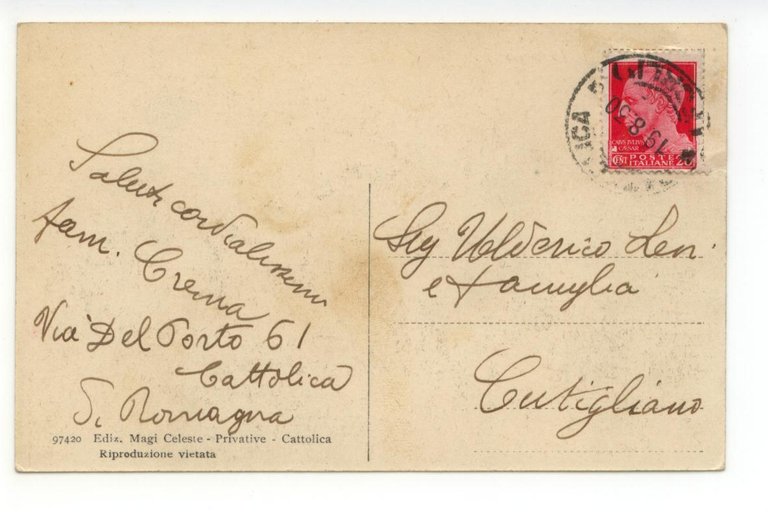 Saluti cordialissimi
fam. Crema
Via Del Porto 61
Cattolica
di Romagna
97420 Ediz. Magi Celeste - Privative - Cattolica
Riproduzione vietata
19-8-30
CAIVS IVLIVS
CAESAR
CENT POSTE 20
ITALIANE
Sig Ulderico Levi
e famiglia
Cutigliano